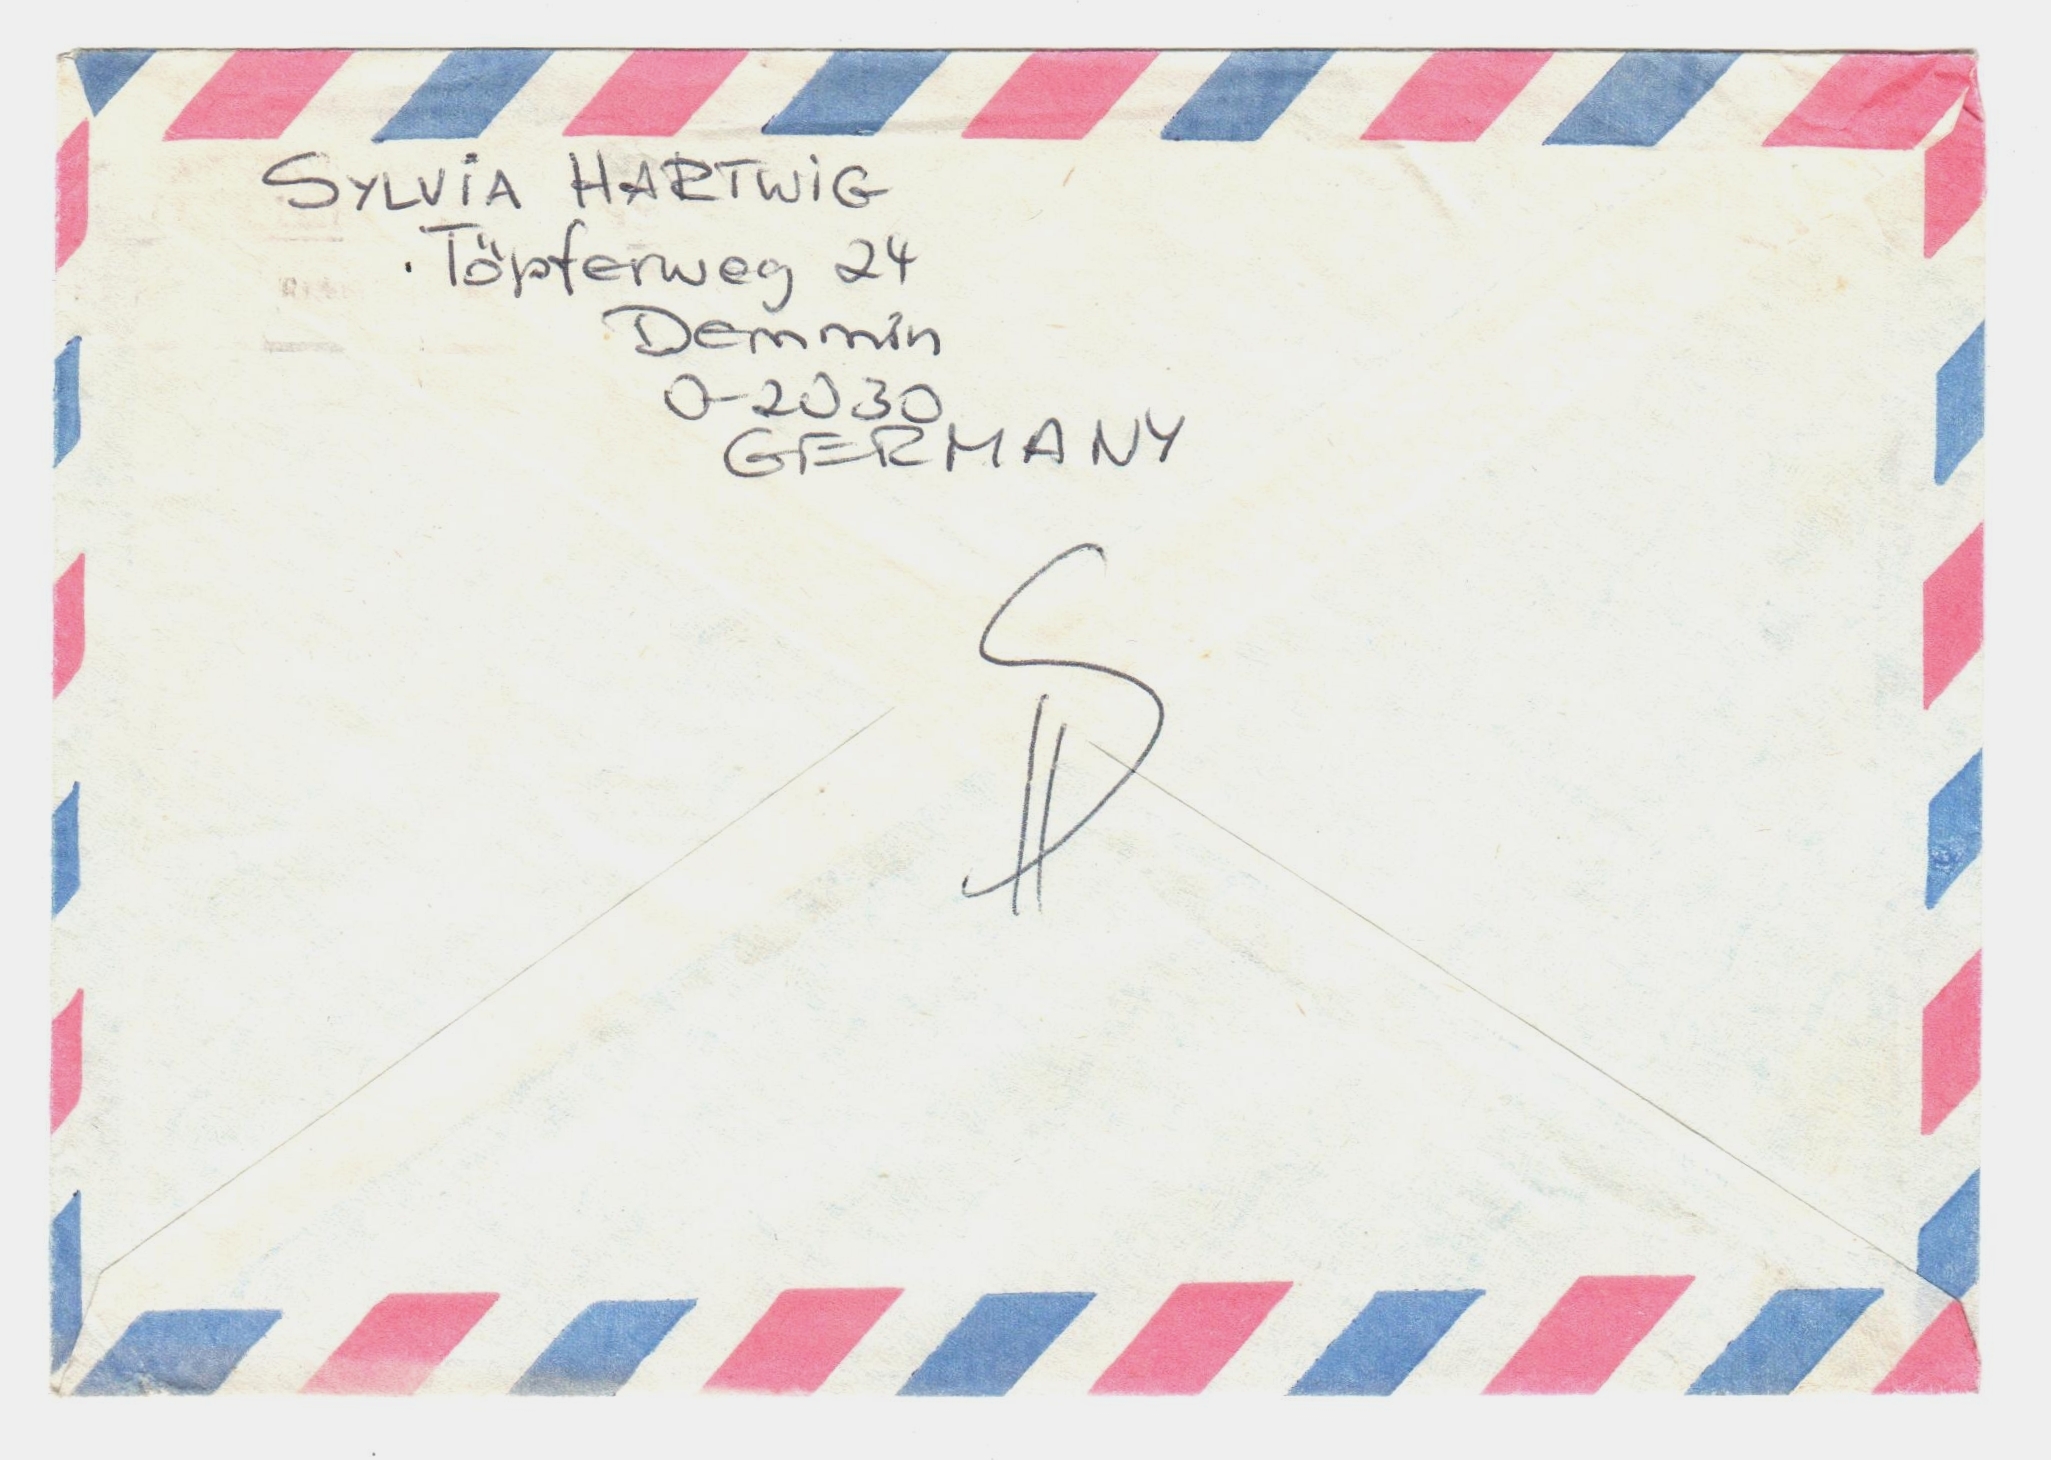 SYLViA HARTWiG
Töpferweg 24
Demmin
O-2030
GERMANY